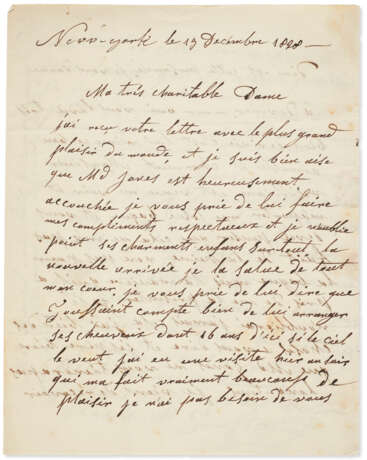 New-york le 19 Decembre 1828 —
Ma tris charitable Dame
jai recu votre lettre avec le plus grand
plaisir du monde et je suis bien aise
que Md Jones est heureusement
accouchée je vous prie de lui faire
mes compliments respectueux et je noublie
point ses charmants enfans surtout la
nouvelle arrivée je la salue de tout
mon coeur je vous prie de lui dire que
Toussaint compte bien de lui arranger
ses cheveux dans 16 ans d'ici, si le ciel
le veut jai eu une visite hier au soir
qui ma fait vraiment beaucoup de
plaisir je nai pas besoin de vous